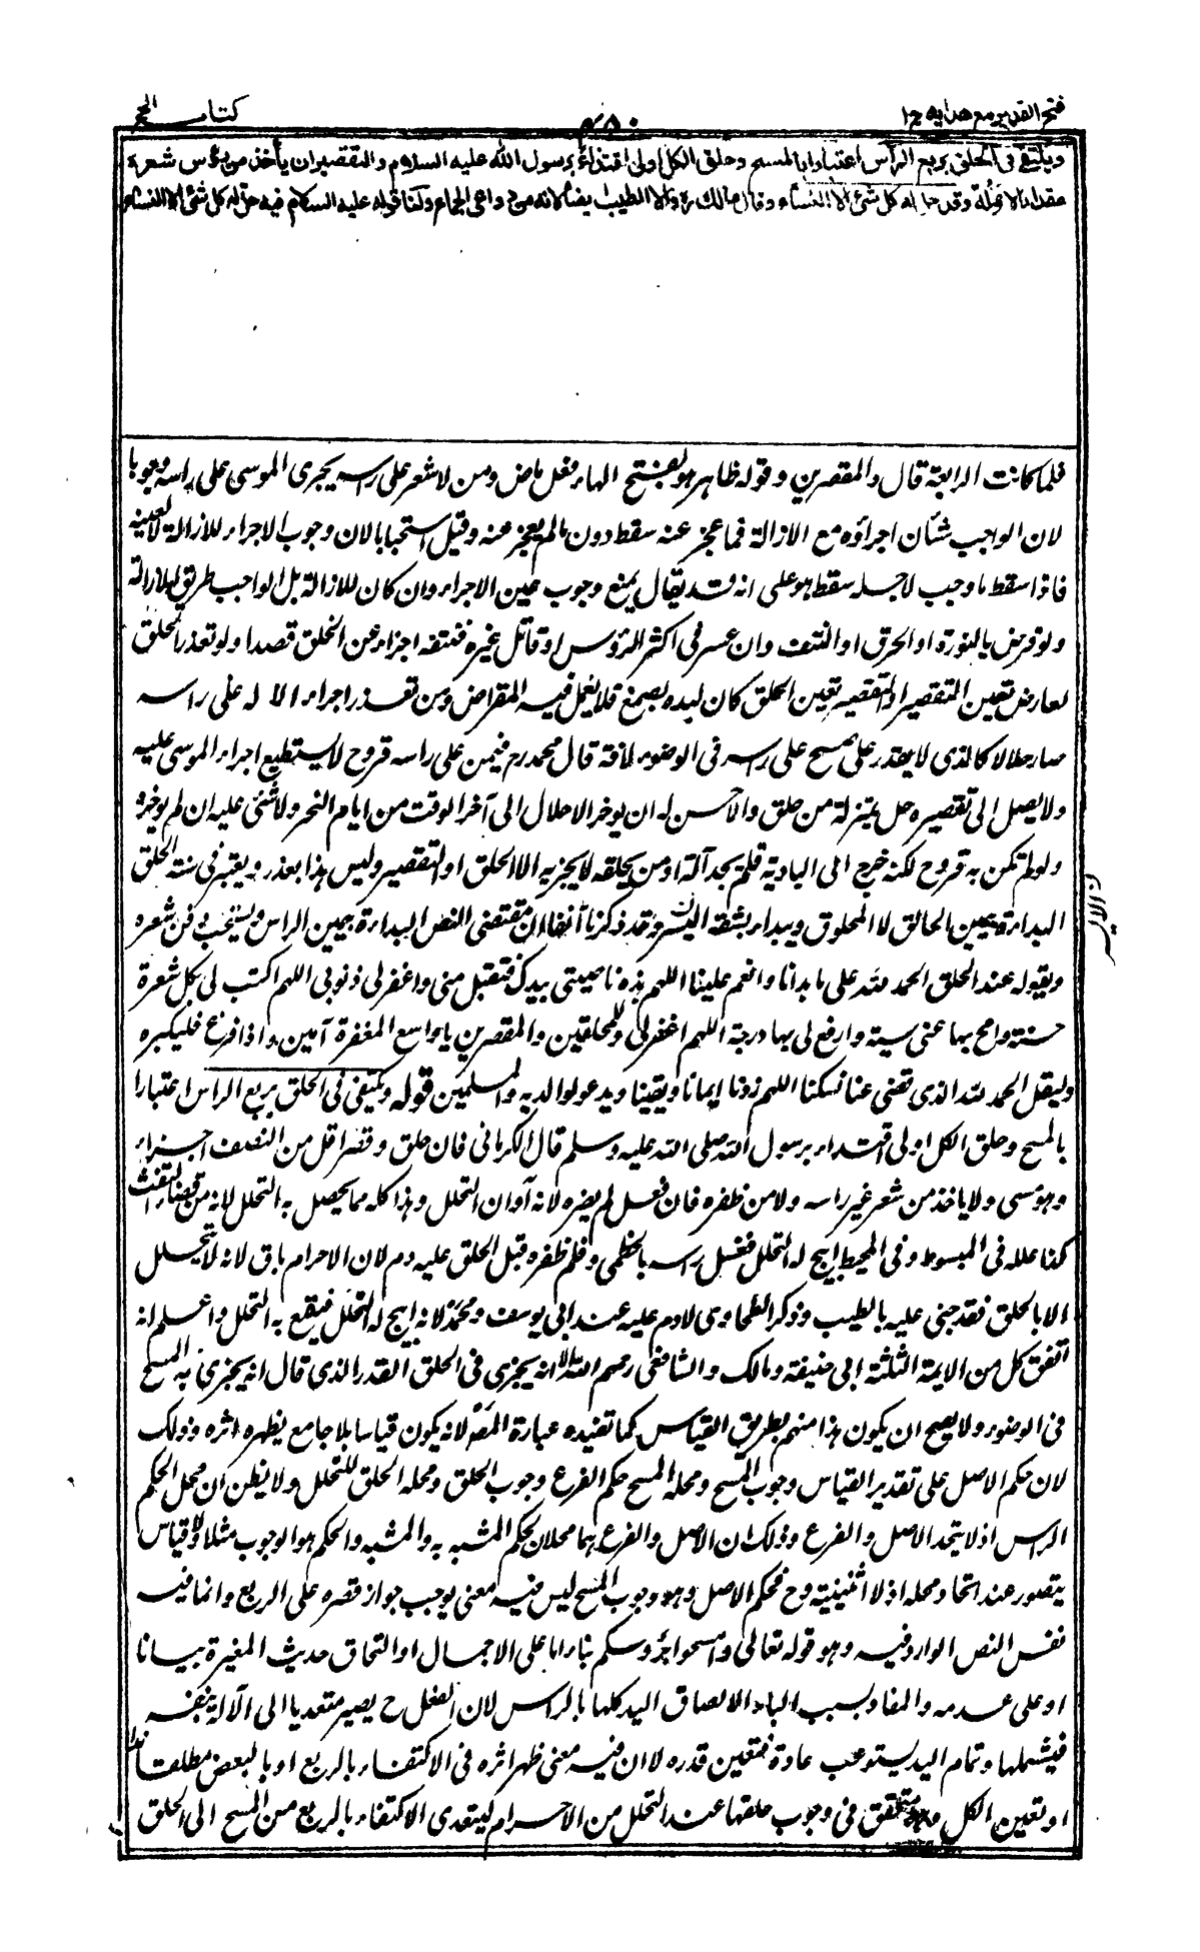 فتح القدير مع هدايه ج ١
٤٥٠
كتاب الحج
ويكتفى فى الحلق بربع الرأس اعتبارا بالمسح وحلق الكل اولى اقتداء برسول الله عليه السلام والتقصير ان يأخذ من رؤس شعره
مقدار الانملة وقد حل له كل شئ الا النساء وقال مالك ره والا الطيب ايضا لانه من دواعى الجماع ولنا قوله عليه السلام فيه حل له كل شئ الا النساء
فلما كانت الرابعة قال والمقصرين وقوله ظاهر هو بفتح الهاء فعل ماض ومن لا شعر على راسه يجرى الموسى على راسه وجوبا
لان الواجب شيأن اجراؤه مع الازالة فما عجز عنه سقط دون ما لم يعجز عنه وقيل استحبابا لان وجوب الاجراء للازالة لا لعينه
فاذا سقط ما وجب لاجله سقط هو على انه قد يقال يمنع وجوب عين الاجراء وان كان للازالة بل الواجب طريق الازالة
ولو فرض بالنورة او الحرق او النتف وان عسر فى اكثر الرؤس او قاتل غيره فنتفه اجزاء عن الحلق قصدا ولو تعذر الحلق
لعارض تعين التقصير او التقصير تعين الحلق كان لبده بصمغ فلا يعمل فيه المقراض ومن تعذر اجراء الآلة على راسه
صار حلالا كالذى لا يقدر على مسح على راسه فى الوضوء لآفة قال محمد رح فيمن على راسه قروح لا يستطيع اجراء الموسى عليه
ولا يصل الى تقصيره حل بمنزلة من حلق والاحسن له ان يوخر الاحلال الى آخر الوقت من ايام النحر ولا شئ عليه ان لم يوخره
ولو لم تكن به قروح لكنه خرج الى البادية فلم يجد آلة او من يحلقه لا يجزيه الا الحلق او التقصير وليس هذا بعذر ويعتبر فى سنة الحلق
البداءة بيمين الحالق لا المحلوق ويبداء بشقه الايسر وقد ذكرنا آنفا ان مقتضى النص البداءة بيمين الراس ويستحب دفن شعره
ويقول عند الحلق الحمد لله على ما هدانا وانعم علينا اللهم هذه ناصيتى بيدك فتقبل منى واغفر لى ذنوبى اللهم اكتب لى بكل شعرة
حسنة وامح بها عنى سيئة وارفع لى بها درجة اللهم اغفر لى وللمحلقين والمقصرين يا واسع المغفرة آمين واذا فرغ فليكبره
وليقل الحمد لله الذى قضى عنا نسكنا اللهم زدنا ايمانا ويقينا ويدعو لوالديه والمسلمين قوله ويكتفى فى الحلق بربع الراس اعتبارا
بالمسح وحلق الكل اولى اقتداء برسول الله صلى الله عليه وسلم قال الكرمانى فان حلق وقصر اقل من النصف اجزاء
وهو مسئ ولا ياخذ من شعر غير راسه ولا من ظفره فان فعل لم يضره لانه آوان التحلل وهذا كله مما يحصل به التحلل لانه من قضاء التفث
كذا علله فى المبسوط وفى المحيط ابيح له التحلل فغسل راسه بالخطمى وقلم ظفره قبل الحلق عليه دم لان الاحرام باق لانه لا يتحلل
الا بالحلق فقد جنى عليه بالطيب وذكر الطحاوى لا دم عليه عند ابى يوسف ومحمد لانه ابيح له التحلل فيقع به التحلل واعلم انه
اتفق كل من الايمة الثلثة ابى حنيفة ومالك والشافعى رحمهم الله الا انه يجزى فى الحلق القدر الذى قال انه يجزى به المسح
فى الوضوء ولا يصح ان يكون هذا منهم بطريق القياس كما تفيده عبارة المص لانه يكون قياسا بلا جامع يظهر اثره وذلك
لان حكم الاصل على تقدير القياس وجوب المسح ومحله المسح حكم الفرع وجوب الحلق ومحله الحلق للتحلل ولا يظن ان محل الحكم
الراس اذ لا يتحد الاصل والفرع وذلك ان الاصل والفرع هما محلان لحكم المشبه به والمشبه والحكم هو الوجوب مثلا ولا قياس
يتصور عند اتحاد محله اذ لا اثنينية وح فحكم الاصل وهو وجوب المسح ليس فيه معنى يوجب جواز قصره على الربع وانما فيه
نفس النص الوارد فيه وهو قوله تعالى وامسحوا برؤسكم بناء اما على الاجمال او التحاق حديث المغيرة بيانا
او على عدمه والمفاد بسبب الباء الالصاق اليد كلها بالراس لان الفعل ح يصير متعديا الى الآلة بنفسه
فيشملها وتمام اليد يستوعب عادة فتعين قدره لا ان فيه معنى ظهر اثره فى الاكتفاء بالربع او بالبعض مطلقا
او تعين الكل وهو متحقق فى وجوب حلقها عند التحلل من الاحرام ليتعدى الاكتفاء بالربع من المسح الى الحلق